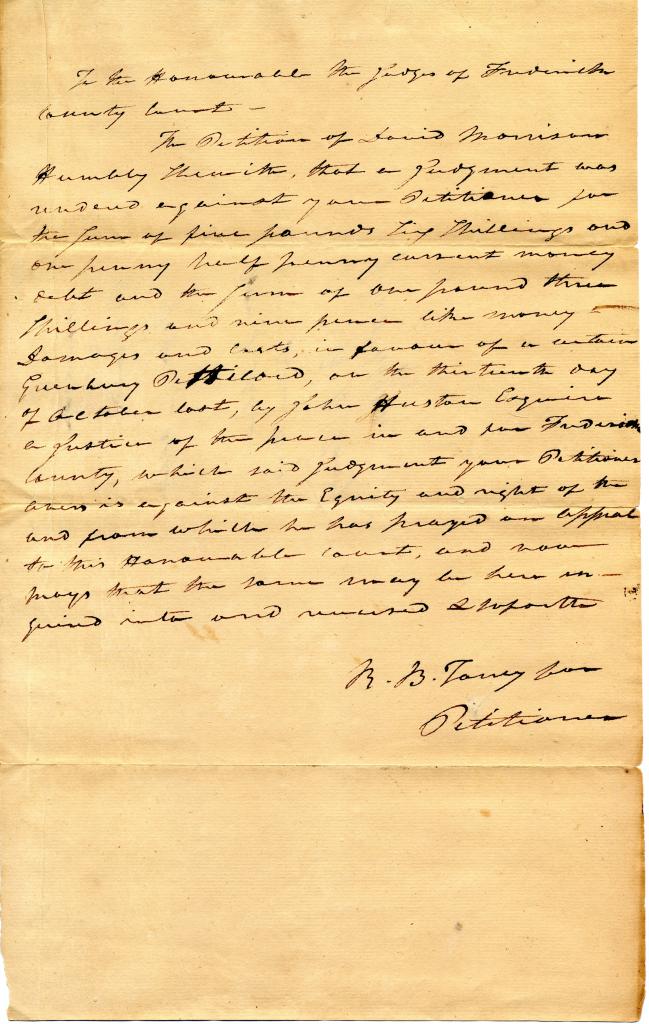 To the Honourable the Judges of Frederick
County Court –
The Petition of David Morrison
Humbly Sheweth, that a Judgment was
rendered against your Petitioner for
the sum of five pounds Six Shillings and
one penny half penny current money
debt and the sum of one pound three
Shillings and nine pence like money –
Damages and Costs, in favour of a certain
Greenbury, on the thirteenth day
of October last, by John Huston Esquire
a Justice of the peace in and for Frederick
County, which said Judgment your Petitioner
avers is against the Equity and right of the
and from which he has prayed an appeal
to this Honourable Court, and now
prays that the same may be here en–
quired into and reversed &
R. B. Taney for
Petitioner